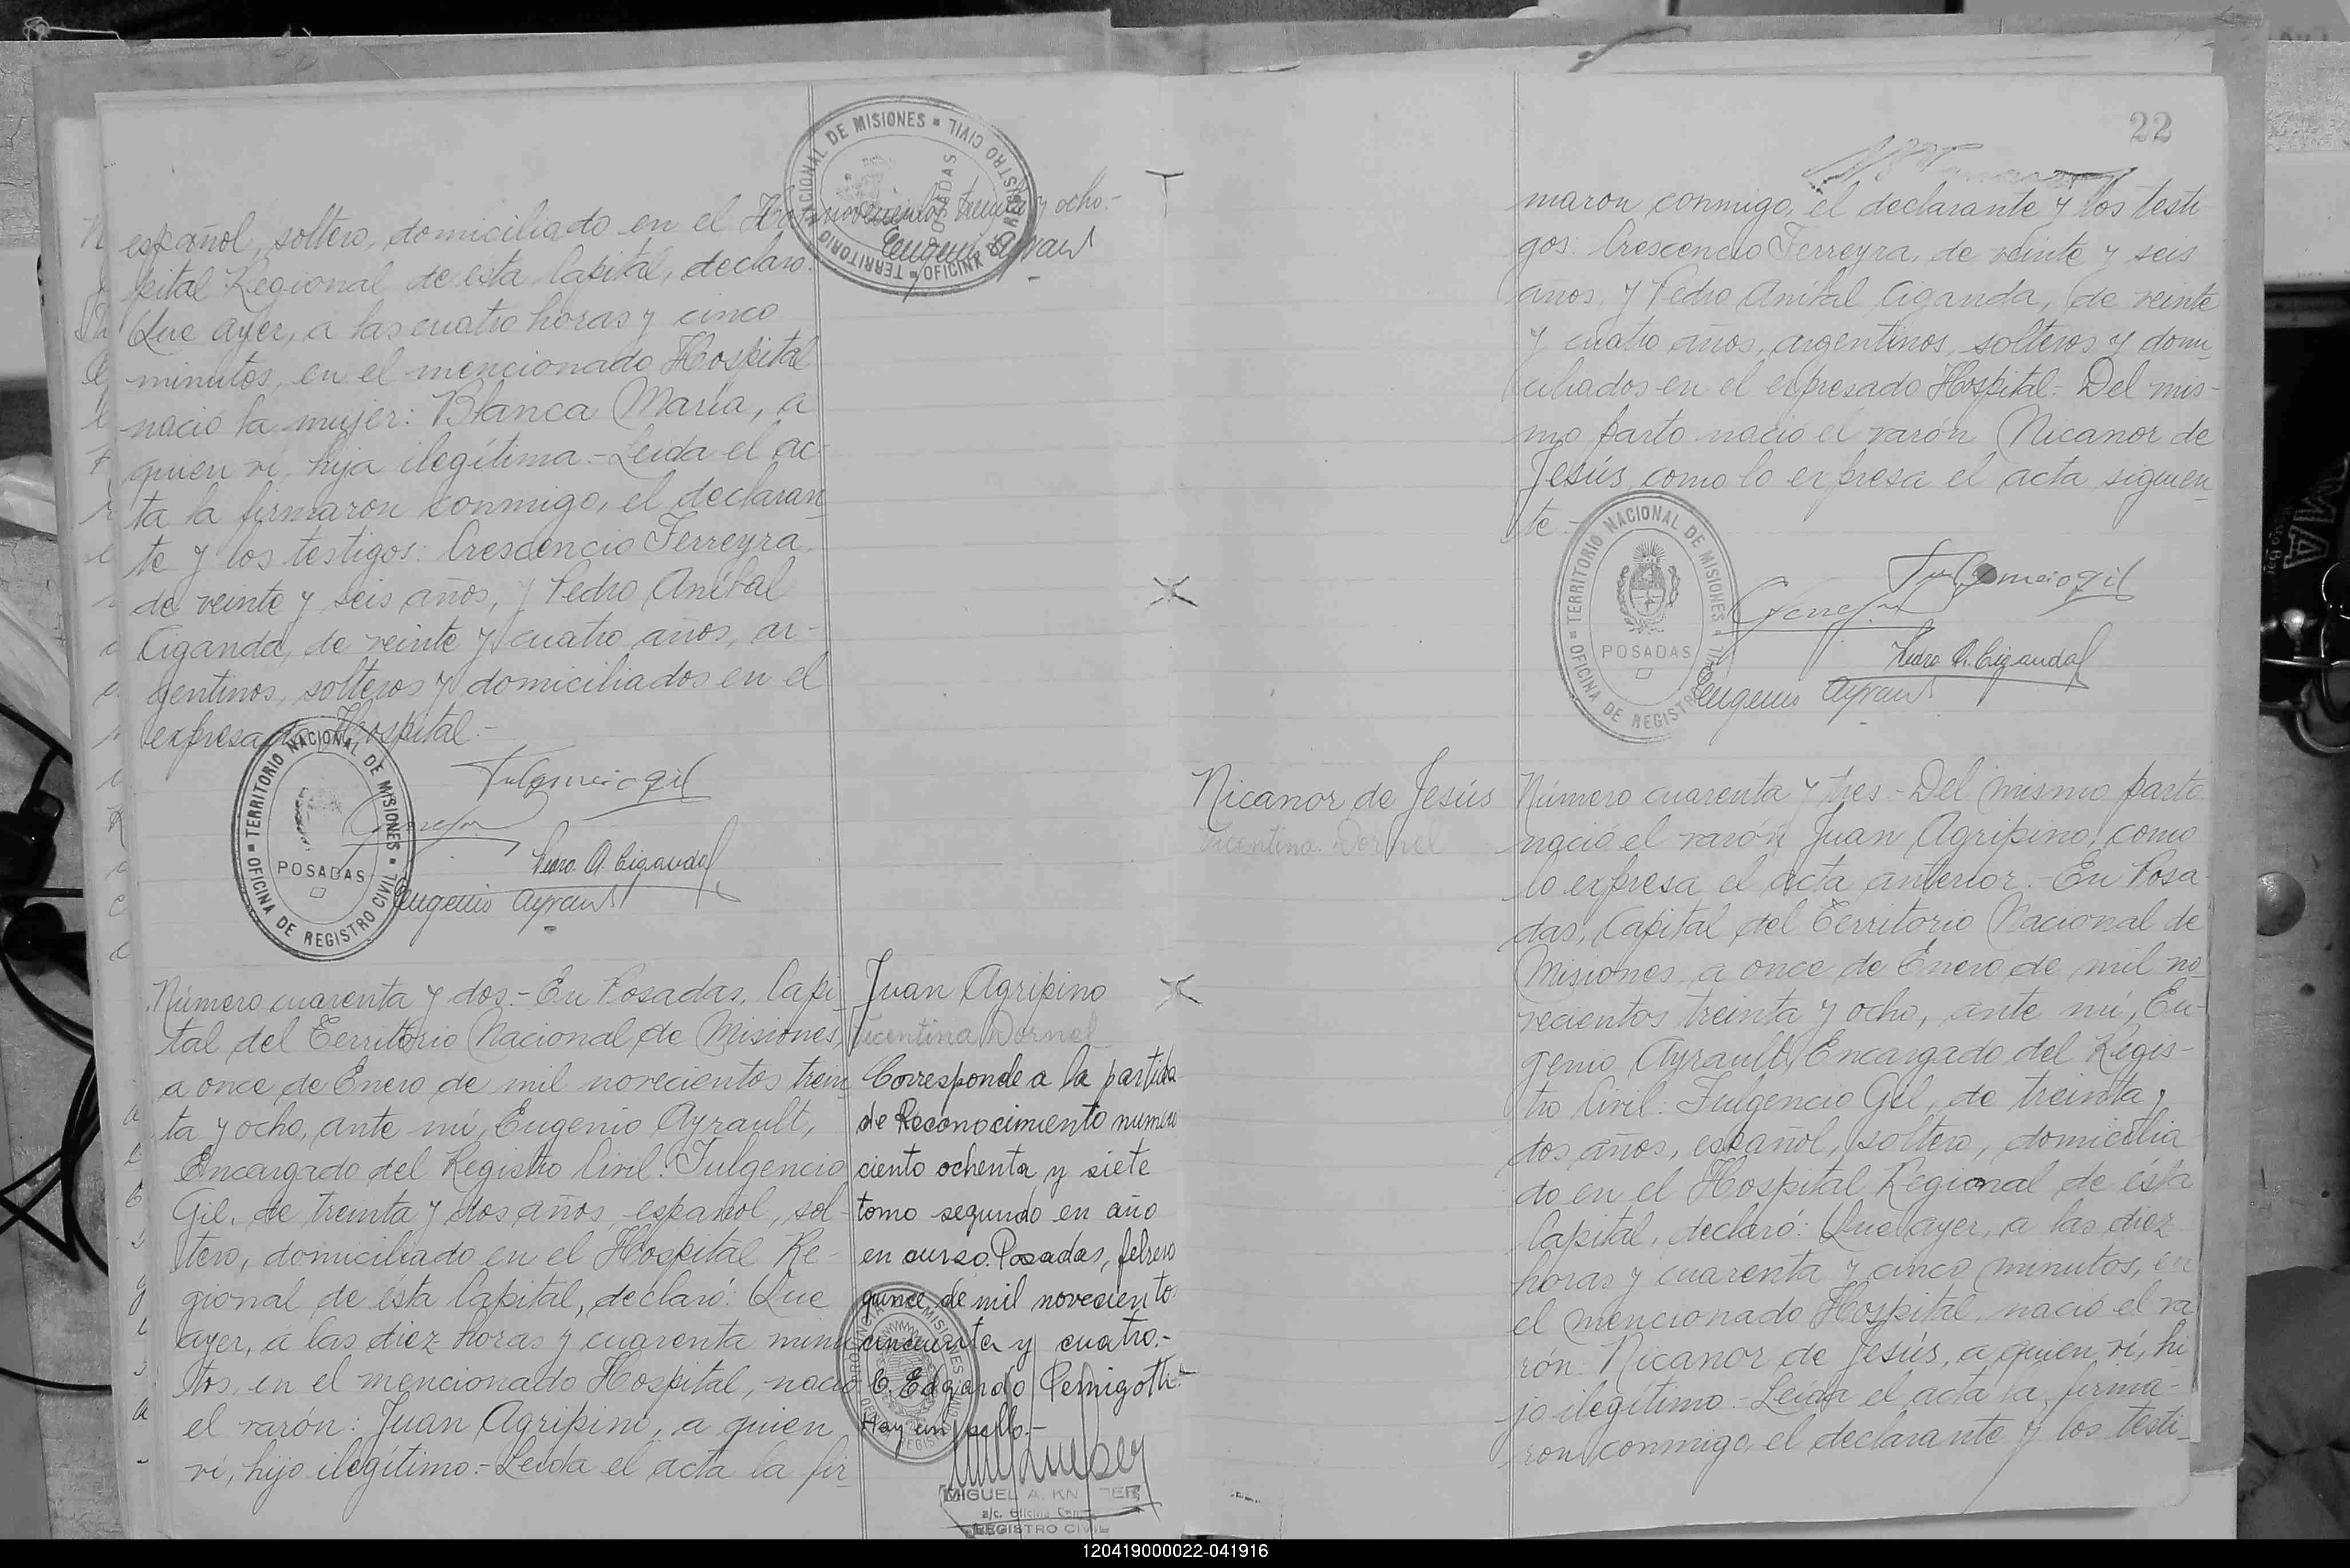 español, soltero, domiciliado en el Hos-
pital Regional de esta Capital, declaró:
Que ayer, a las cuatro horas y cinco
minutos, en el mencionado Hospital
nació la mujer: Blanca María, a
quien ví, hija ilegítima.- Leída el ac-
ta la firmaron conmigo, el declaran-
te y los testigos: Crescencio Ferreyra,
de veinte y seis años, y Pedro Aníbal
Ciganda, de veinte y cuatro años, ar-
gentinos, solteros y domiciliados en el
expresado Hospital.-
Fulgencio gil
Pedro A. Ciganda
Eugenio Ayrault
TERRITORIO NACIONAL DE MISIONES
POSADAS
OFICINA DE REGISTRO CIVIL
Número cuarenta y dos.- En Posadas, Capi-
tal del Territorio Nacional de Misiones,
a once de Enero de mil novecientos trein-
ta y ocho, ante mí, Eugenio Ayrault,
Encargado del Registro Civil: Fulgencio
Gil, de treinta y dos años, español, sol-
tero, domiciliado en el Hospital Re-
gional de ésta Capital, declaró: Que
ayer, a las diez horas y cuarenta minu-
tos, en el mencionado Hospital, nació
el varón: Juan Agripino, a quien
ví, hijo ilegítimo.- Leída el acta la fir-
TERRITORIO NACIONAL DE MISIONES
POSADAS
OFICINA DE REGISTRO CIVIL
novecientos treinta y ocho.-
Eugenio Ayrault
Juan Agripino
Vicentina Dornel
Corresponde a la partida
de Reconocimiento numero
ciento ochenta y siete
tomo segundo en año
en curso. Posadas, febrero
quince de mil novecientos
cincuenta y cuatro.-
E. Edgardo
Hay un sello.-
MIGUEL A.
REGISTRO CIVIL
22
maron conmigo, el declarante y los testi
gos: Crescencio Ferreyra, de veinte y seis
años, y Pedro Aníbal Ciganda, de veinte
y cuatro años, argentinos, solteros y domi-
ciliados en el expresado Hospital.- Del mis-
mo parto nació el varón Nicanor de
Jesús como lo expresa el acta siguien-
te.-
TERRITORIO NACIONAL DE MISIONES
POSADAS
OFICINA DE REGISTRO CIVIL
Fulgencio gil
Pedro A. Ciganda
Eugenio Ayrault
Nicanor de Jesús
Vicentina Dornel
Número cuarenta y tres.- Del mismo parto
nació el varón Juan Agripino, como
lo expresa el acta anterior.- En Posa-
das, Capital del Territorio Nacional de
Misiones, a once de Enero de mil no-
vecientos treinta y ocho, ante mí, Eu-
genio Ayrault, Encargado del Regis-
tro Civil: Fulgencio Gil, de treinta y
dos años, español, soltero, domicilia
do en el Hospital Regional de ésta
Capital, declaró: Que ayer, a las diez
horas y cuarenta y cinco minutos, en
el mencionado Hospital, nació el va
rón: Nicanor de Jesús, a quien ví, hi
jo ilegítimo.- Leída el acta la firma-
ron conmigo, el declarante y los testi-
120419000022-041916